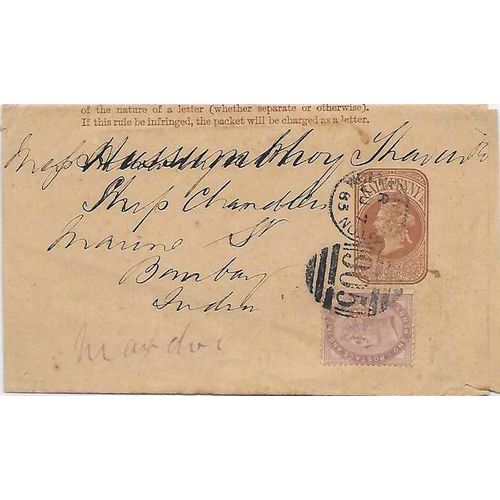 of the nature of a letter (whether separate or otherwise).
If this rule be infringed, the packet will be charged as a letter.
Mess Hussumbhoy
Ship Chandler
Marine St
Bombay
India
Mandvi
83